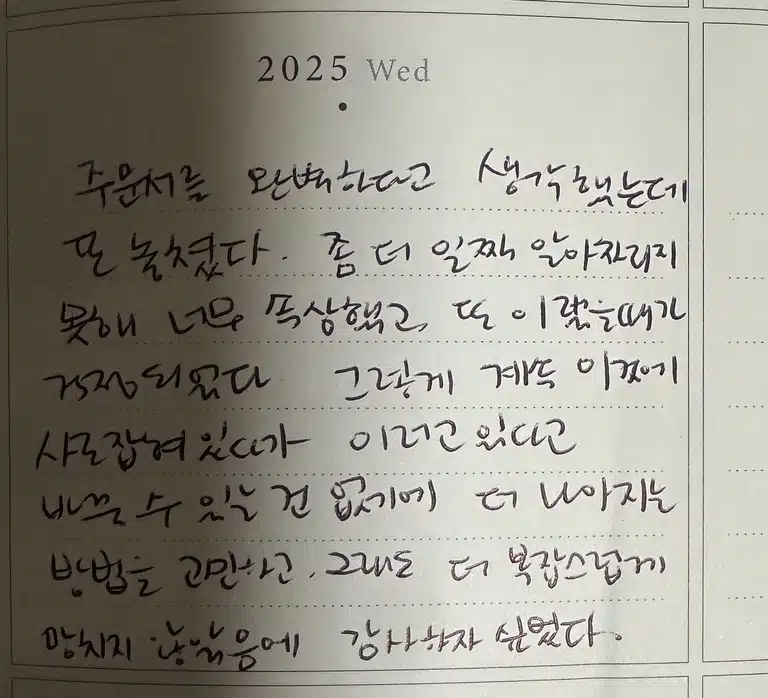 2025 Wed
주문서를 완벽하다고 생각했는데
또 놓쳤다. 좀 더 일찍 알아차리지
못해 너무 속상했고, 또 이랬을때가
걱정되었다 그렇게 계속 이것에
사로잡혀 있다가 이러고 있다고
바뀔 수 있는 건 없기에 더 나아지는
방법을 고민하고, 그래도 더 복잡스럽게
망치지 않았음에 감사하자 싶었다.